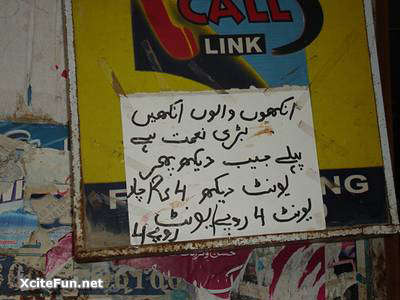 CALL
LINK
انکھوں والوں انکھیں
بڑی نعمت ہے
پہلے جیب دیکھو پھر
یونٹ دیکھو 4
یونٹ 4 روپے/یونٹ
4 روپے
NG
XciteFun.net